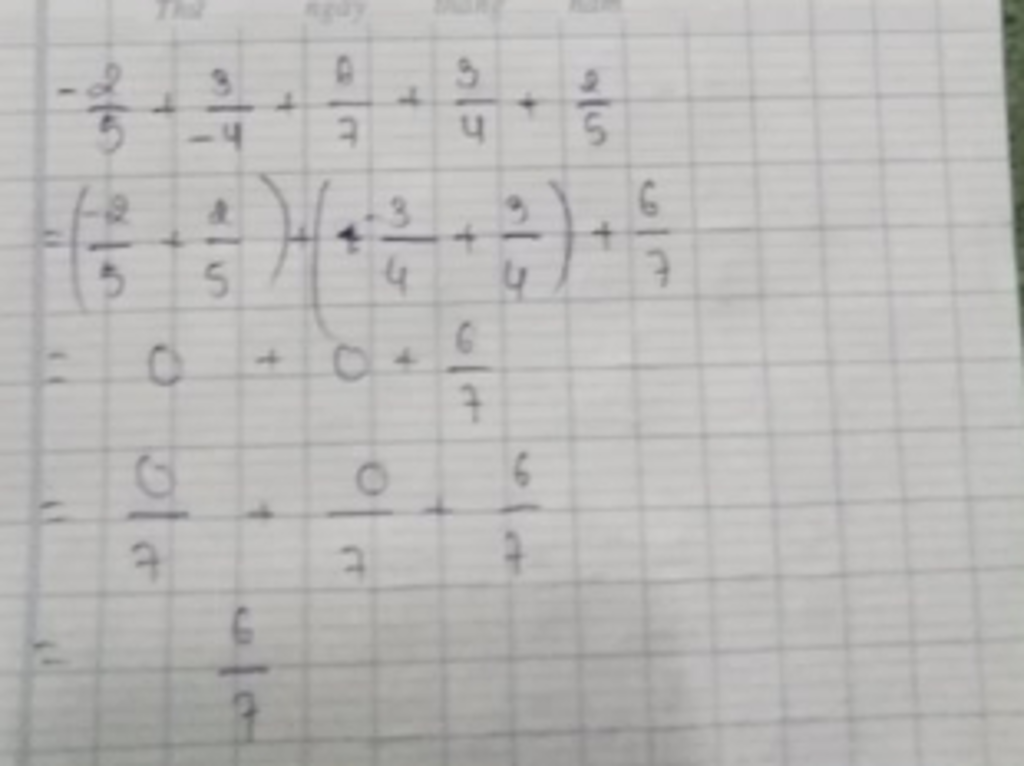 Thứ ngày tháng năm
-2/5 + 3/-4 + 6/7 + 3/4 + 2/5
= (-2/5 + 2/5) + (-3/4 + 3/4) + 6/7
= 0 + 0 + 6/7
= 0/7 + 0/7 + 6/7
= 6/7